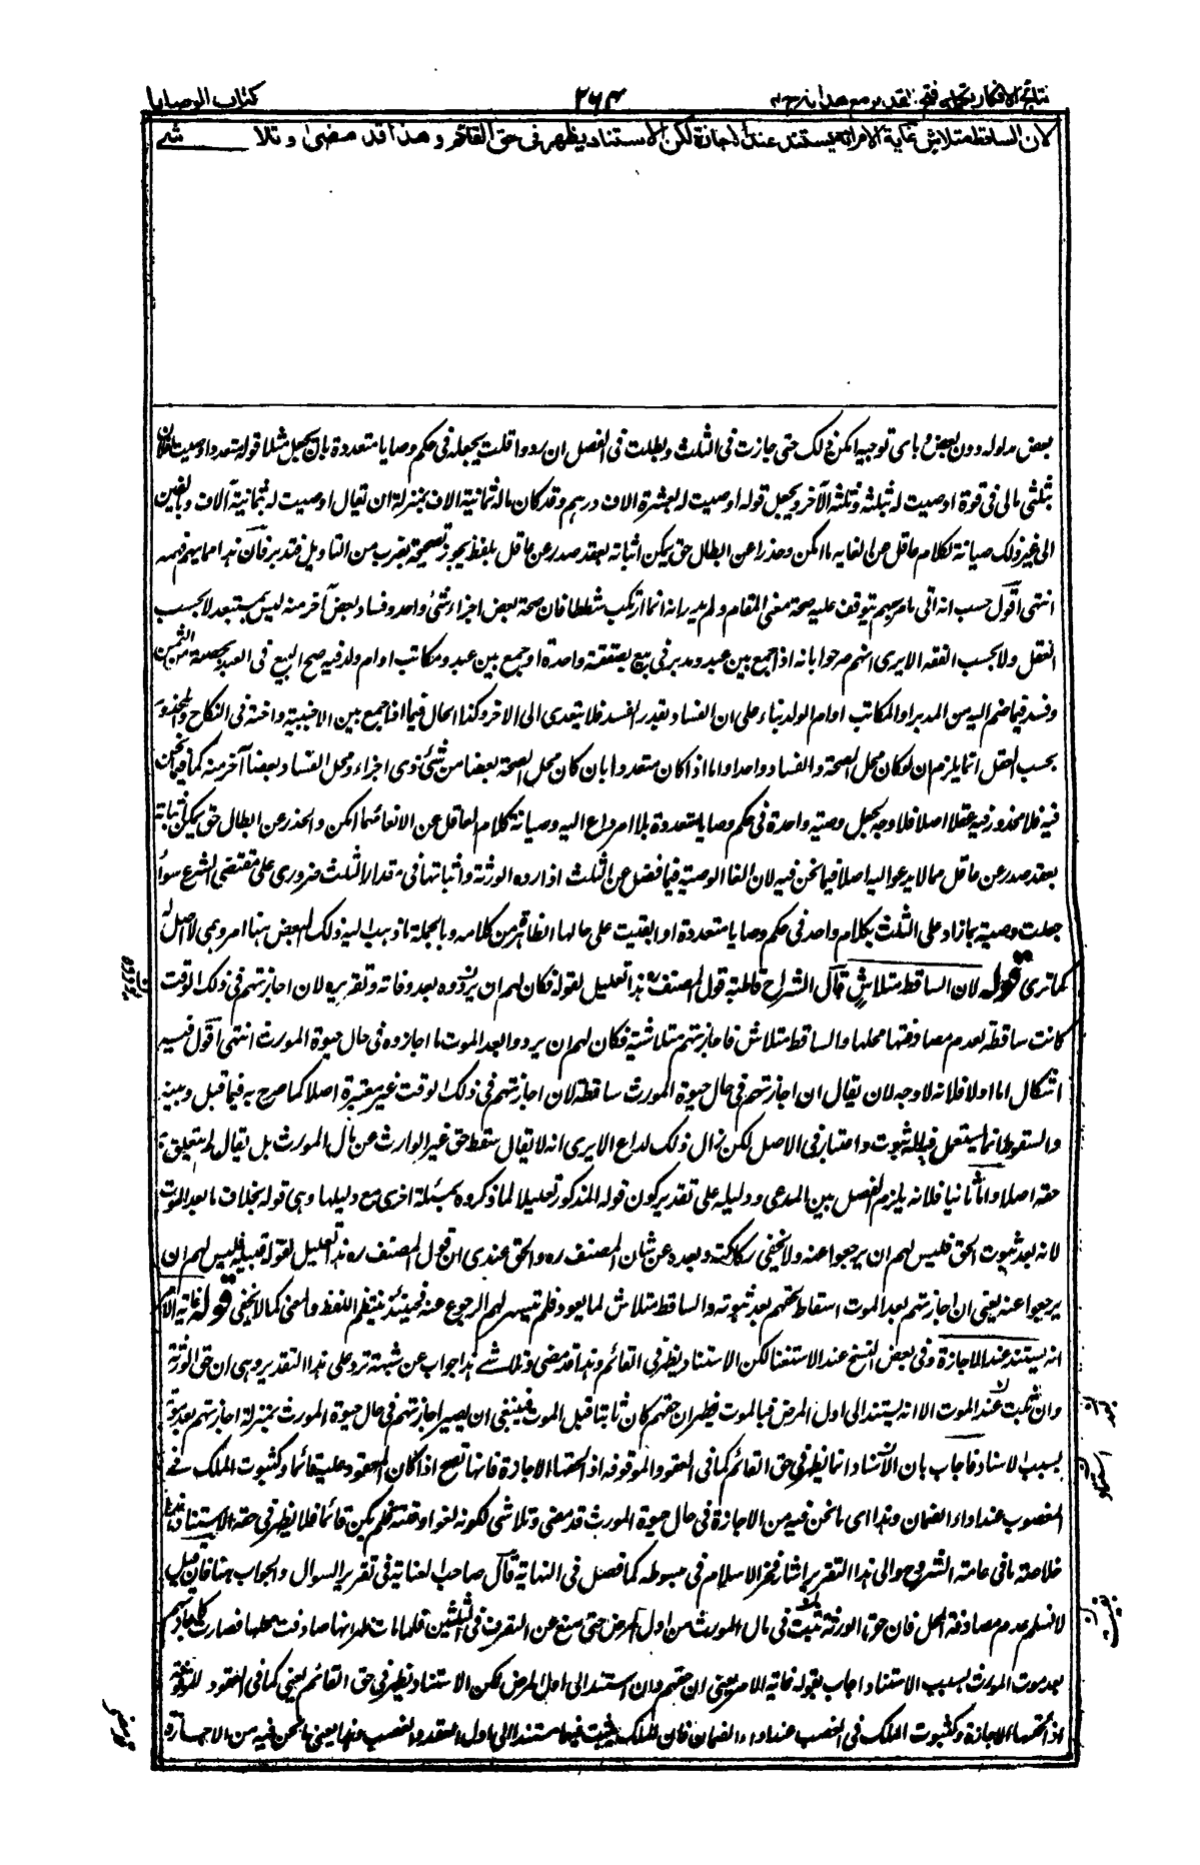 نتائج الافكار تكمله فتح القدير مع هدايه ج ۴
۲۶۴
كتاب الوصايا
لان الساقط متلاش غاية الامر انه يستند عند الاجازة لكن الاستناد يظهر في حق القائم وهذا قد مضى وتلاشى
بعض مدلوله دون بعض باى توجيه امكن ذلك حتى جازت فى الثلث وبطلت فى الفضل ان ردوا قلت يجعله فى حكم وصايا متعددة بان يجعل مثلا قوله اوصيت لفلان
بثلثى مالى فى قوة اوصيت له بثلثه وثلثه الآخر ويجعل قوله اوصيت له بعشرة الاف درهم وقد كان ماله ثمانية الاف بمنزلة ان يقال اوصيت له بثمانية آلاف وبالفين
الى غير ذلك صيانة لكلام عاقل عن الغايه ما امكن وحذرا عن ابطال حق يمكن اثباته بعقد صدر عن عاقل بلفظ يجوز تصحيحه بضرب من التاويل فتدبر فان هذا مما يهم فهمه
انتهى اقول حسب انه اتى بامر مهم يتوقف عليه صحة معنى المقام ولم يدر انه انما ارتكب شططا فان صحة بعض اجزاء شئ واحد وفساد بعض آخر منه ليس بمستبعد لا بحسب
العقل ولا بحسب الفقه الا يرى انهم صرحوا بانه اذا جمع بين عبد ومدبر فى بيع بصفقة واحدة او جمع بين عبد ومكاتب او ام ولد فيه صح البيع فى العبد بحصته من الثمن
وفسد فيما ضم اليه من المدبر او المكاتب او ام الولد بناء على ان الفساد بقدر المفسد فلا يتعدى الى الآخر وكذا الحال فيما اذا جمع بين الاجنبية واخته فى النكاح والمحذور
بحسب العقل انما يلزم ان لو كان محل الصحة والفساد واحدا واما اذا كان متعددا بان كان محل الصحة بعضا من شئ ذى اجزاء ومحل الفساد بعضا آخر منه كما فيما نحن
فيه فلا محذور فيه عقلا اصلا فلا وجه لجعل وصية واحدة فى حكم وصايا متعددة بلا امر داع اليه وصيانة كلام العاقل عن الالغاء مهما امكن والحذر عن ابطال حق يمكن اثباته
بعقد صدر عن عاقل مما لا يدعو اليه اصلا فيما نحن فيه لان الغا الوصية فيما فضل عن الثلث اذا رده الورثة واثباتها فى مقدار الثلث ضرورى على مقتضى الشرع سواء
جعلت وصية بما زاد على الثلث بكلام واحد فى حكم وصايا متعددة او ابقيت على حالها الظاهر من كلامه وبالجملة ما ذهب اليه ذلك البعض ههنا امر وهمى لا اصل له
كما ترى قوله لان الساقط متلاش قال الشراح قاطبة قول المصنف ره هذا تعليل لقوله فكان لهم ان يردوه بعد وفاته وتقريره لان اجازتهم فى ذلك الوقت
كانت ساقطة بعدم مصادفتها محلها والساقط متلاش فاجازتهم متلاشية فكان لهم ان يردوا بعد الموت ما اجازوه فى حال حيوة المورث انتهى اقول فيه
اشكال اما اولا فلانه لا وجه لان يقال ان اجازتهم فى حال حيوة المورث ساقطة لان اجازتهم فى ذلك الوقت غير معتبرة اصلا كما صرح به فيما قبل وبينه
والسقوط انما يستعمل فيما له ثبوت واعتبار فى الاصل لكن زال ذلك لداع الا يرى انه لا يقال سقط حق غير الوارث عن مال المورث بل يقال لم يتعلق به
حقه اصلا واما ثانيا فلانه يلزم الفصل بين المدعى ودليله على تقدير كون قوله المذكور تعليلا لما ذكروه بمسئلة اخرى مع دليلها وهى قوله بخلاف ما بعد الموت
لانه بعد ثبوت الحق فليس لهم ان يرجعوا عنه ولا يخفى ركاكته وبعده عن شان المصنف ره والحق عندى ان قول المصنف ره هذا تعليل لقوله قبيله فليس لهم ان
يرجعوا عنه يعنى ان اجازتهم بعد الموت اسقاط لحقهم بعد ثبوته والساقط متلاش لما يعود فلم تيسر لهم الرجوع عنه فحينئذ ينتظم اللفظ والمعنى كما لا يخفى قوله غاية الامر
انه يستند عند الاجازة وفى بعض النسخ عند الاستغنا لكن الاستناد يظهر فى القائم وهذا قد مضى وتلاشى هذا جواب عن شبهة ترد على هذا التقدير وهى ان حق الورثة
وان ثبت عند الموت الا انه يستند الى اول المرض فبالموت يظهر ان حقهم كان ثابتا قبل الموت فينبغى ان يصير اجازتهم فى حال حيوة المورث بمنزلة اجازتهم بعد موته
بسبب الاستناد فاجاب بان الاستناد انما يظهر فى حق القائم كما فى العقود الموقوفه اذا لحقها الاجازة فانها تصح اذا كان المعقود عليه قائما وكثبوت الملك فى
المغصوب عند اداء الضمان وهذا اى ما نحن فيه من الاجازة فى حال حيوة المورث قد مضى وتلاشى لكونه لغوا وقته فلم يكن قائما فلا يظهر فى حقه الاستناد هذا
خلاصة ما فى عامة الشروح والى هذا التقرير اشار فخر الاسلام فى مبسوطه كما فصل فى النهاية قال صاحب العناية فى تقرير السوال والجواب ههنا فان قيل
لا نسلم عدم مصادفة المحل فان حق الورثة يثبت فى مال المورث من اول المرض حتى منع عن التصرف فى الثلثين فلما مات ظهر انها صادفت محلها فصارت كاجازتهم
بعد موت المورث بسبب الاستناد اجاب بقوله غاية الامر يعنى ان حقهم وان استند الى اول المرض لكن الاستناد يظهر فى حق القائم يعنى كما فى العقود الموقوفة
اذا لحقها الاجازة وكثبوت الملك فى الغصب عند اداء الضمان فان الملك يثبت فيها مستندا الى اول العقد والغصب وهذا يعنى ما نحن فيه من الاجازة